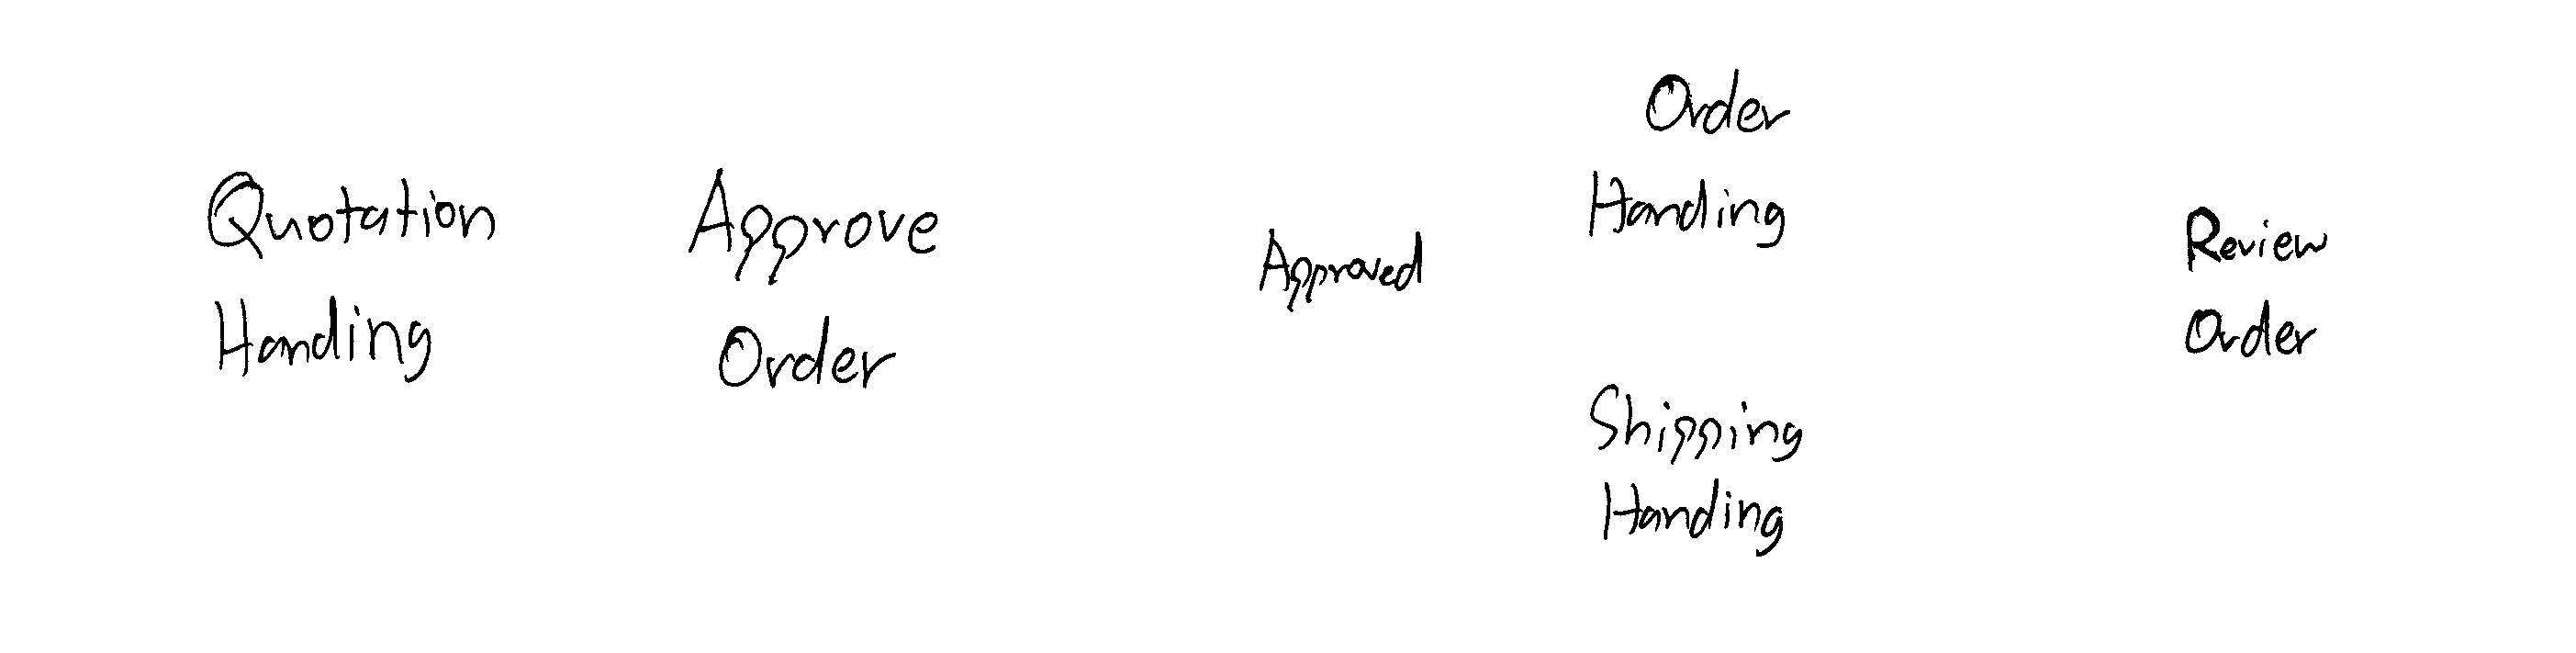 Quotation
Handing
Approve
Order
Approved
Order
Handing
Shipping
Handing
Review
Order